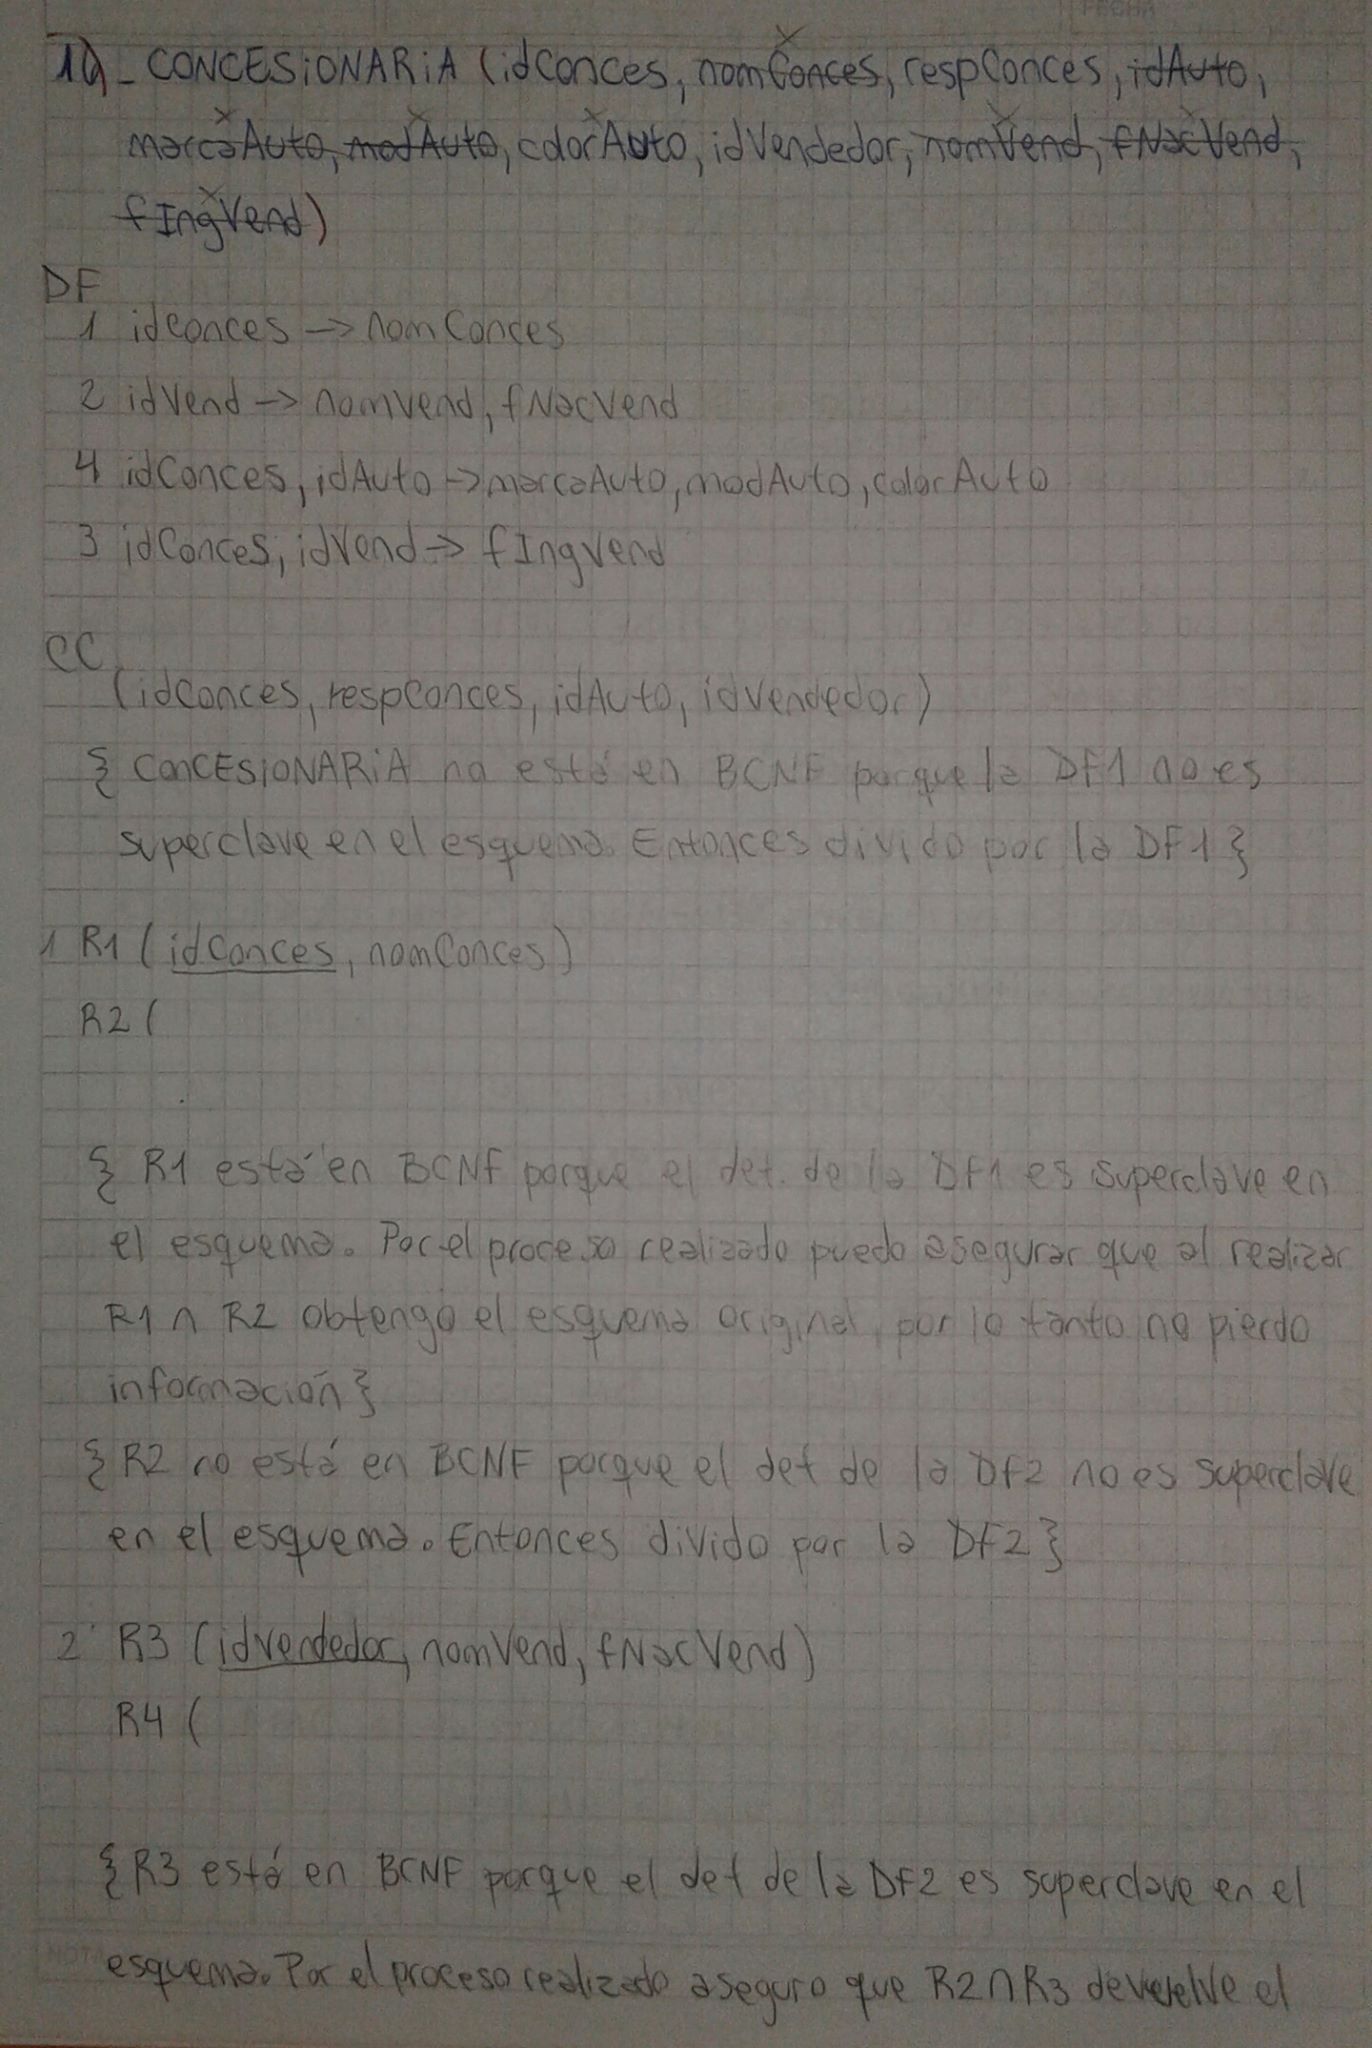 10_ CONCESIONARIA (idConces, nomConces, respConces, idAuto,
marcaAuto, modAuto, colorAuto, idVendedor, nomVend, fNacVend,
fIngVend)
DF
1 idConces -> nomConces
2 idVend -> nomVend, fNacVend
4 idConces, idAuto -> marcaAuto, modAuto, colorAuto
3 idConces, idVend -> fIngVend
CC
(idConces, respConces, idAuto, idVendedor)
{ CONCESIONARIA no está en BCNF porque la DF1 no es
superclave en el esquema. Entonces divido por la DF1}
1 R1 (idConces, nomConces)
R2 (
{ R1 está en BCNF porque el det. de la DF1 es superclave en
el esquema. Por el proceso realizado puedo asegurar que al realizar
R1 ∩ R2 obtengo el esquema original, por lo tanto no pierdo
información}
{R2 no está en BCNF porque el det de la DF2 no es superclave
en el esquema. Entonces divido por la DF2}
2 R3 (idVendedor, nomVend, fNacVend)
R4 (
{R3 está en BCNF porque el det de la DF2 es superclave en el
esquema. Por el proceso realizado aseguro que R2∩R3 devuelve el